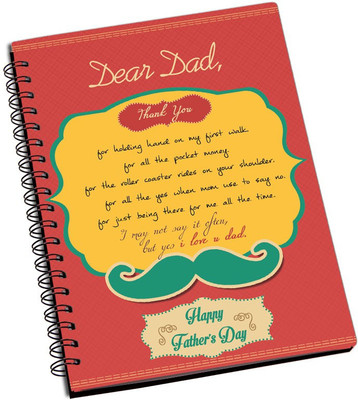 Dear Dad,
Thank You
for holding hand on my first walk.
for all the pocket money.
for the roller coaster rides on your shoulder.
for all the yes when mom use to say no.
for just being there for me all the time.
I may not say it often,
but yes i love u dad.
Happy
Father's Day